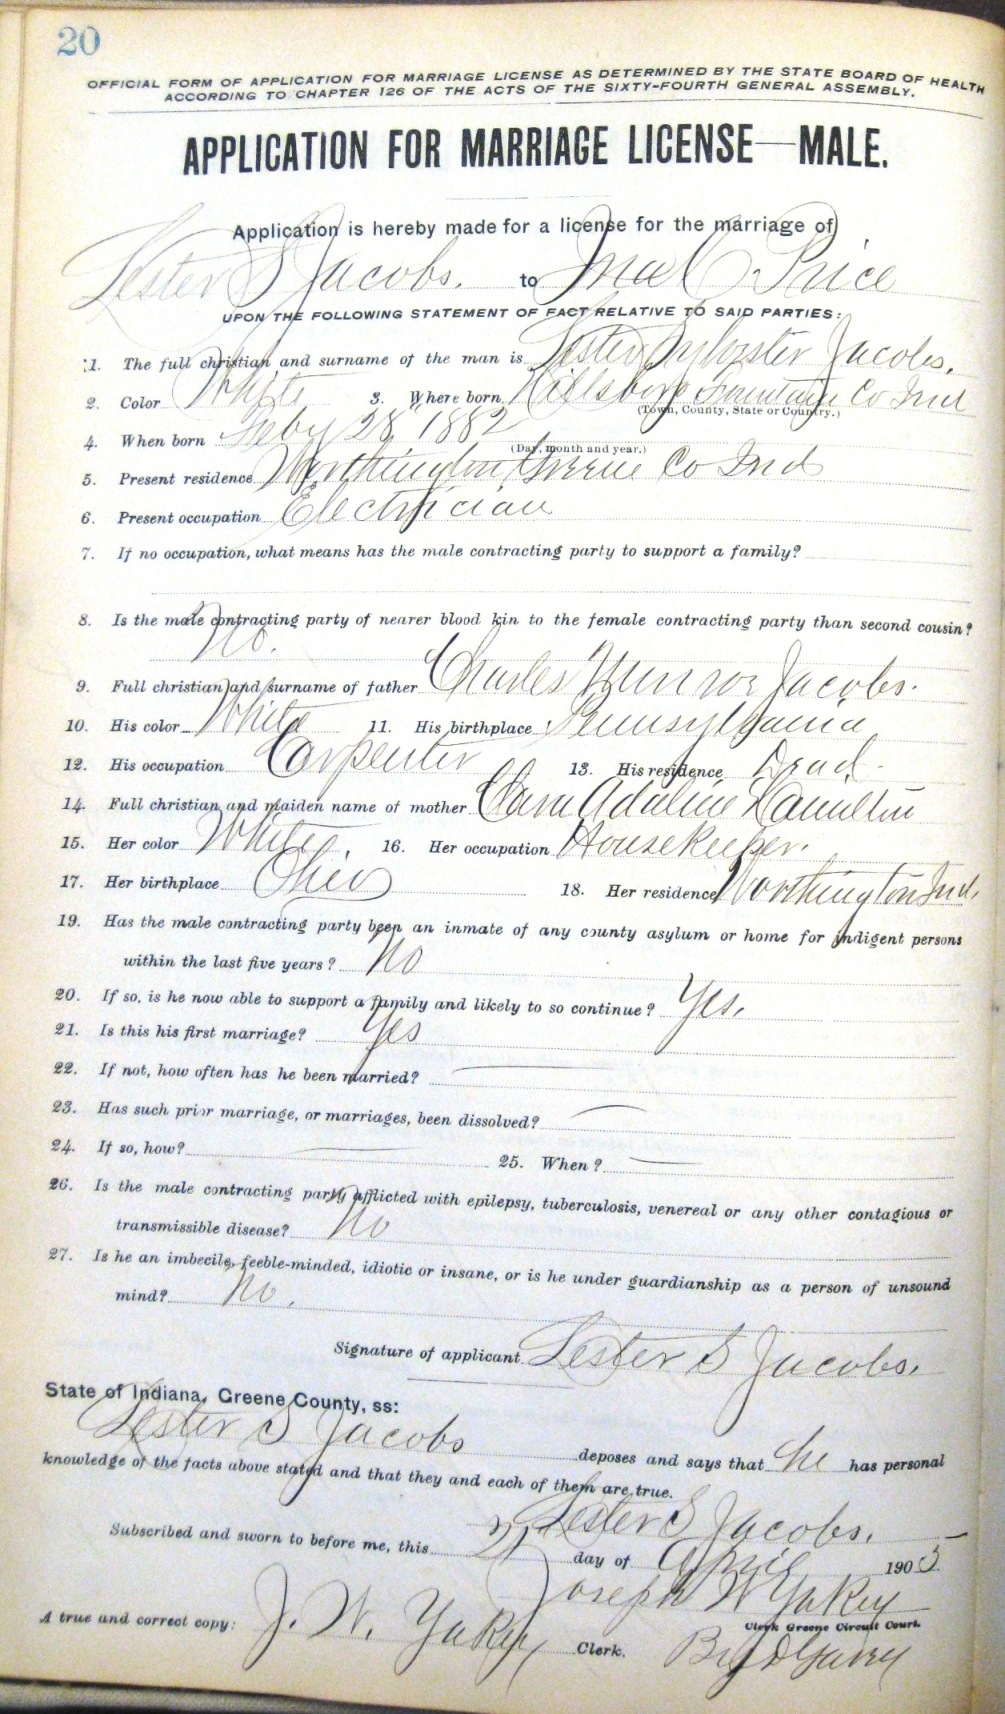 20
OFFICIAL FORM OF APPLICATION FOR MARRIAGE LICENSE AS DETERMINED BY THE STATE BOARD OF HEALTH
ACCORDING TO CHAPTER 126 OF THE ACTS OF THE SIXTY-FOURTH GENERAL ASSEMBLY.
APPLICATION FOR MARRIAGE LICENSE—MALE.
Application is hereby made for a license for the marriage of
Lester S Jacobs. to Ina C Price
UPON THE FOLLOWING STATEMENT OF FACT RELATIVE TO SAID PARTIES:
1. The full christian and surname of the man is Lester Sylvester Jacobs.
2. Color White 3. Where born Hillsboro Fountain Co Ind
(Town, County, State or Country.)
4. When born Feby 28, 1882
(Day, month and year.)
5. Present residence Worthington Greene Co Ind
6. Present occupation Electrician
7. If no occupation, what means has the male contracting party to support a family?
8. Is the male contracting party of nearer blood kin to the female contracting party than second cousin?
No.
9. Full christian and surname of father Charles Munroe Jacobs.
10. His color White 11. His birthplace Pennsylvania
12. His occupation Carpenter 13. His residence Dead.
14. Full christian and maiden name of mother Clara Adaline Hamilton
15. Her color White. 16. Her occupation Housekeeper.
17. Her birthplace Ohio 18. Her residence Worthington Ind.
19. Has the male contracting party been an inmate of any county asylum or home for indigent persons
within the last five years? No
20. If so, is he now able to support a family and likely to so continue? Yes.
21. Is this his first marriage? Yes
22. If not, how often has he been married? —
23. Has such prior marriage, or marriages, been dissolved? —
24. If so, how? — 25. When? —
26. Is the male contracting party afflicted with epilepsy, tuberculosis, venereal or any other contagious or
transmissible disease? No
27. Is he an imbecile, feeble-minded, idiotic or insane, or is he under guardianship as a person of unsound
mind? No.
Signature of applicant Lester S Jacobs.
State of Indiana, Greene County, ss:
Lester S Jacobs deposes and says that he has personal
knowledge of the facts above stated and that they and each of them are true.
Lester S Jacobs.
Subscribed and sworn to before me, this 21 day of April 1905
Joseph W Yakey
Clerk Greene Circuit Court.
A true and correct copy: J. W. Yakey Clerk.